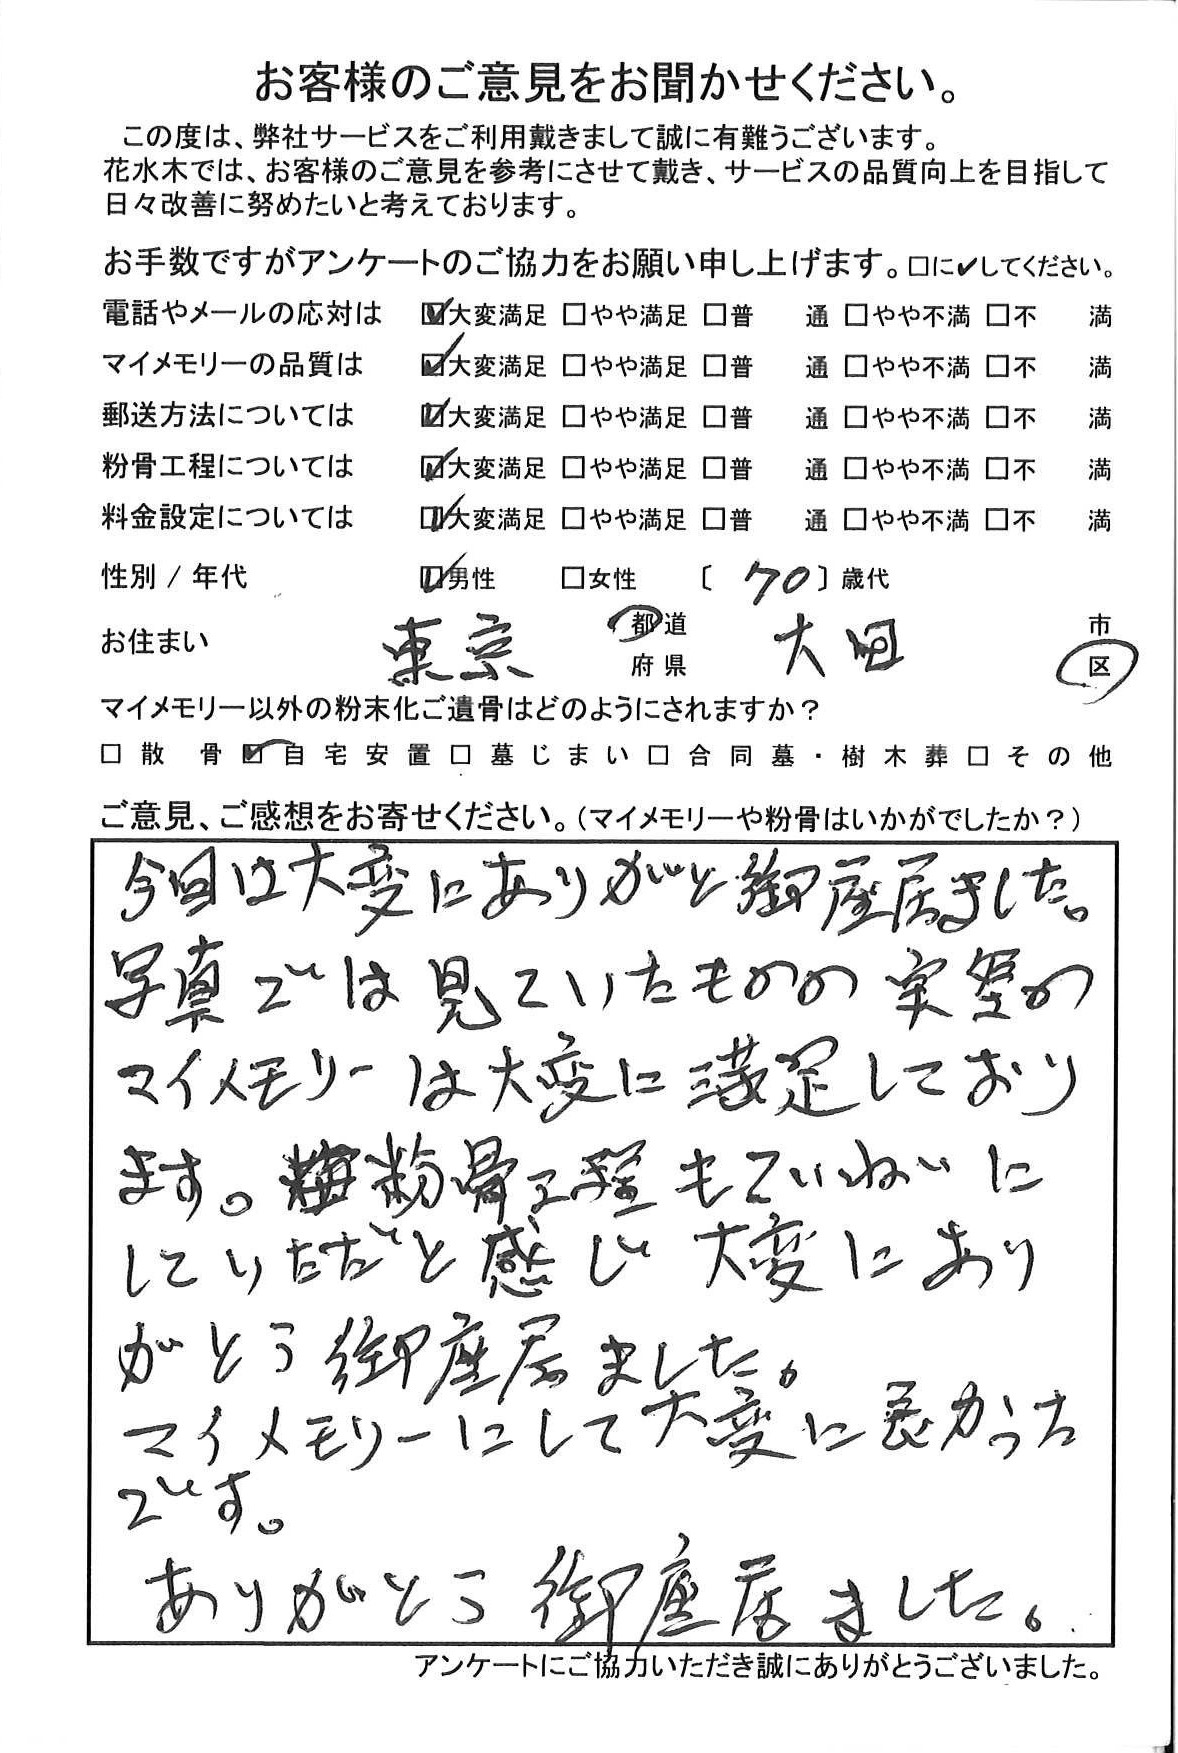 お客様のご意見をお聞かせください。
この度は、弊社サービスをご利用戴きまして誠に有難うございます。
花水木では、お客様のご意見を参考にさせて戴き、サービスの品質向上を目指して
日々改善に努めたいと考えております。
お手数ですがアンケートのご協力をお願い申し上げます。□に✔してください。
電話やメールの応対は ☑大変満足 □やや満足 □普 通 □やや不満 □不 満
マイメモリーの品質は ☑大変満足 □やや満足 □普 通 □やや不満 □不 満
郵送方法については ☑大変満足 □やや満足 □普 通 □やや不満 □不 満
粉骨工程については ☑大変満足 □やや満足 □普 通 □やや不満 □不 満
料金設定については ☑大変満足 □やや満足 □普 通 □やや不満 □不 満
性別 / 年代 ☑男性 □女性 〔 70 〕歳代
お住まい 東京 都道府県 大田 市区
マイメモリー以外の粉末化ご遺骨はどのようにされますか？
□散骨 ☑自宅安置 □墓じまい □合同墓・樹木葬 □その他
ご意見、ご感想をお寄せください。（マイメモリーや粉骨はいかがでしたか？）
今回は大変にありがと御座居ました。
写真では見ていたものの実筌の
マイメモリーは大変に満足しており
ます。粉骨工程もていねいに
していただと感じ 大変にあり
がとう御座居ました。
マイメモリーにして大変に良かった
です。
ありがとう御座居ました。
アンケートにご協力いただき誠にありがとうございました。